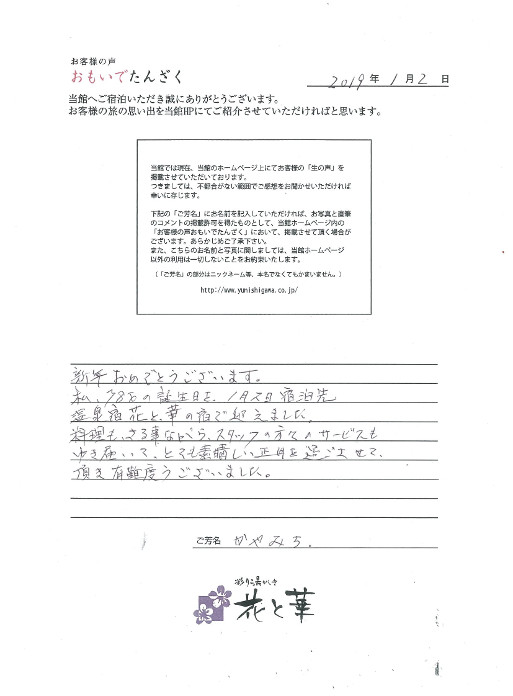 お客様の声
おもいでたんざく
2019年1月2日
当館へご宿泊いただき誠にありがとうございます。
お客様の旅の思い出を当館HPにてご紹介させていただければと思います。
当館では現在、当館のホームページ上にてお客様の「生の声」を
掲載させていただいております。
つきましては、不都合がない範囲でご感想をお聞かせいただければ
幸いに存じます。
下記の「ご芳名」にお名前を記入していただければ、お写真と直筆
のコメントの掲載許可を得たものとして、当館ホームページ内の
「お客様の声おもいでたんざく」において、掲載させて頂く場合が
ございます。あらかじめご了承下さい。
また、こちらのお名前と写真に関しましては、当館ホームページ
以外の利用は一切しないことをお約束いたします。
(「ご芳名」の部分はニックネーム等、本名でなくてもかまいません。)
http://www.yunishigawa.co.jp/
新年おめでとうございます。
私、78才の誕生日を、1月2日宿泊先
温泉宿花と華の宿で迎えました。
料理もさる事ながら、スタッフの方々のサービスも
ゆき届いて、とても素晴しい正月を過ごさせて、
頂き有難度うございました。
ご芳名 かやみち.
彩り湯かしき
花と華